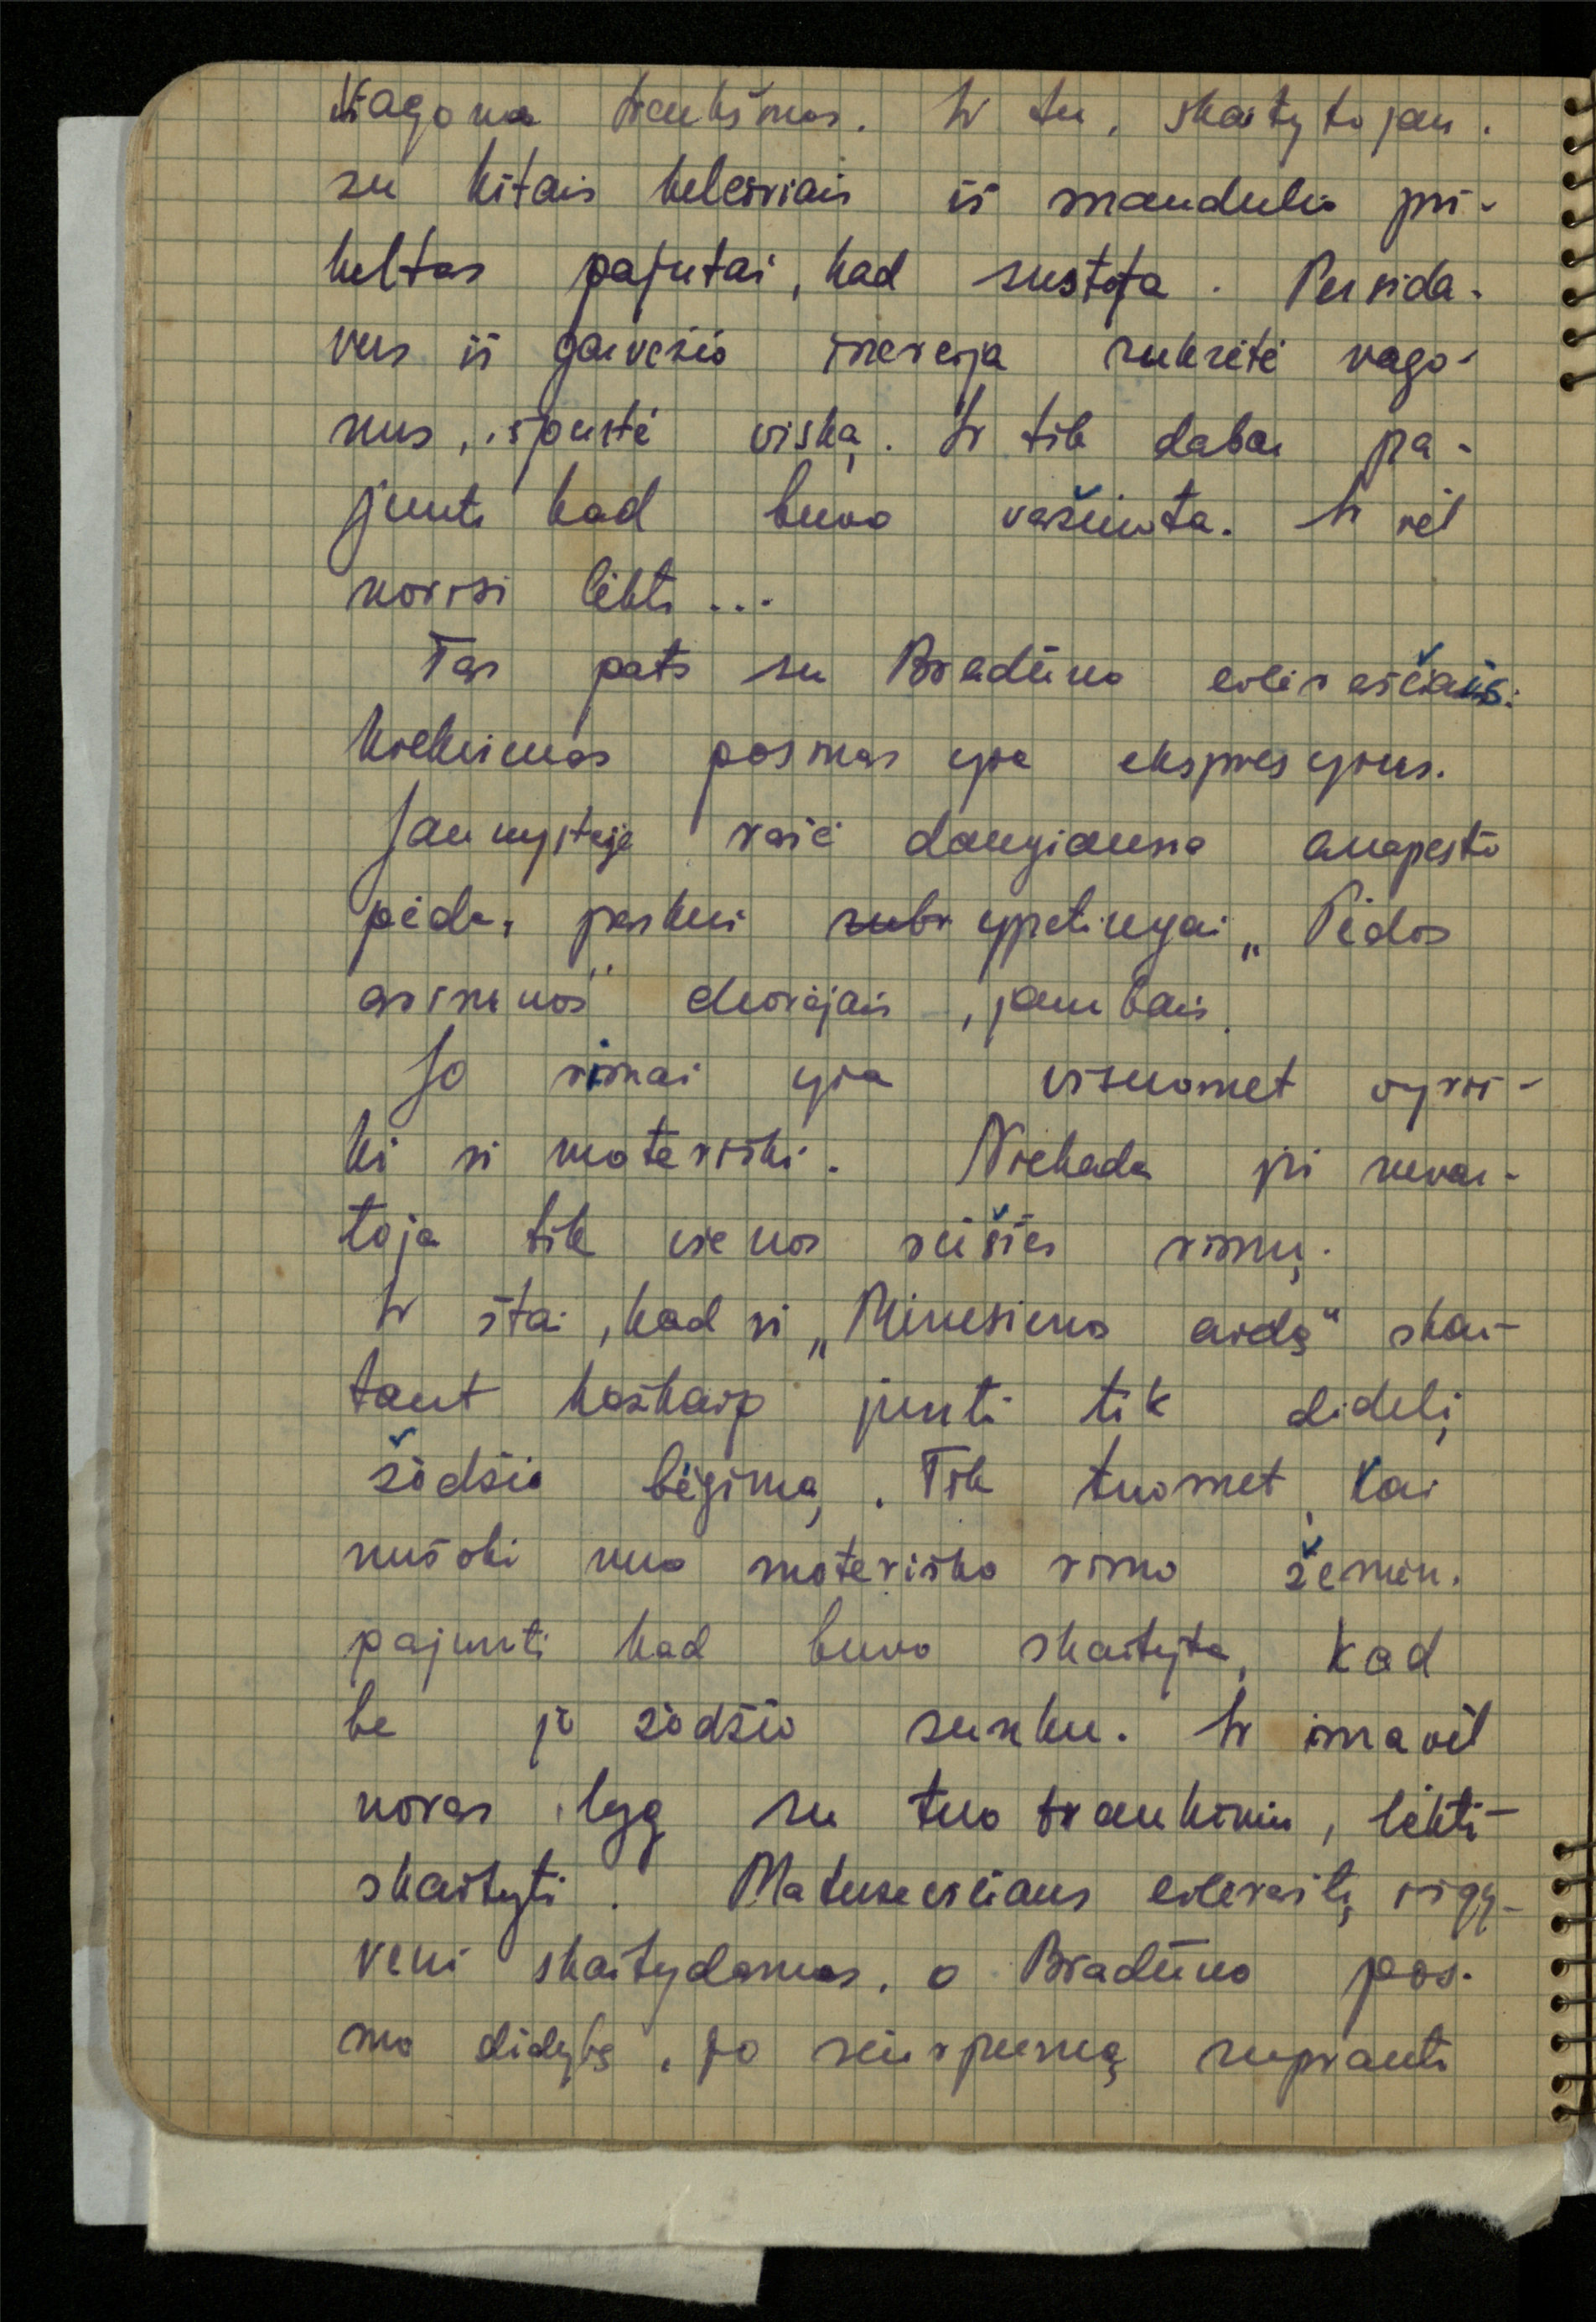 Vagonų trenksmas. Ir tu, skaitytojau.
su kitais keleiviais iš snaudulio pri-
keltas pajutai, kad sustota. Persida-
vus iš garvežio inercija sukrėtė vago-
nus, išpurtė viską. Ir tik dabar pa-
junti kad buvo važiuota. Ir vėl
norisi lėkti...
Tas pats su Bradūno eilėraščiais.
Kiekvienas posmas yra ekspresyvus.
Jaunystėje rašė daugiausia anapesto
pėda, paskui ypatingai „Pėdos
arimuos" chorėjais, jambais.
Jo rimai yra visuomet vyriš-
ki ir moteriški. Niekada jis nevar-
toja tik vienos rūšies rimų.
Ir štai, kad ir „Mėnesienos aidą" skai-
tant kažkaip junti tik didelį
žodžio bėgimą. Tik tuomet, kai
nušoki nuo moteriško rimo žemėn.
pajunti kad buvo skaityta, kad
be jo žodžio sunku. Ir ima vėl
noras lyg su tuo traukiniu, lėkti-
skaityti. Matusevičiaus eilėraštį išgy-
veni skaitydamas, o Bradūno pos-
mo didybę, jo siurpumą supranti